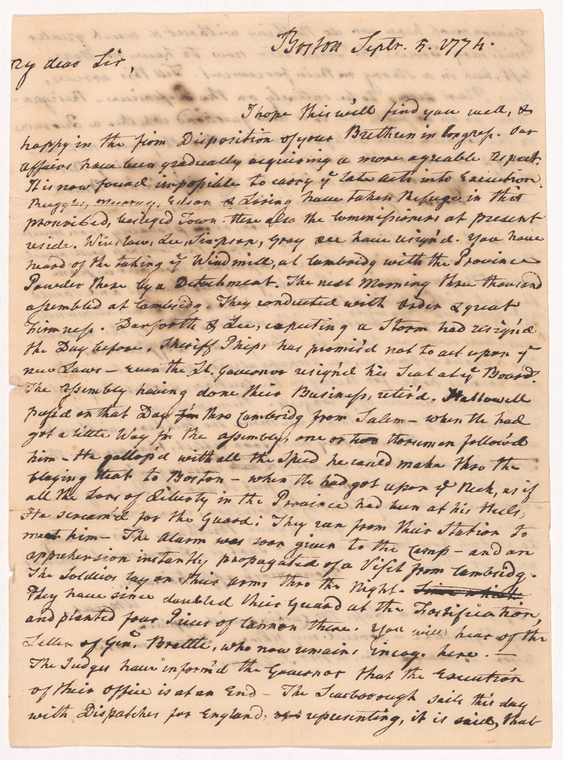 Boston Septr. 5. 1774.
My dear Sir,
I hope this will find you well, &
happy in the firm Disposition of your Brethren in Congress. Our
affairs have been gradually acquiring a more agreable aspect.
It is now found impossible to carry ye late acts into Execution.
Ruggles, Murray, Edson & Loring have taken Refuge in this
proscribed, besieged Town. Here also the Commissioners at present
reside. Winslow, Lee, Simpson, Gray have resign'd. You have
heard of the taking ye Windmill, at Cambridg with the Province
Powder there by a Detachment. The next Morning three thousand
assembled at Cambridg. They conducted with Order & great
Firmness. Danforth & Lee, expecting a Storm had resign'd
the Day before, Sheriff Phips has promis'd not to act upon ye
new Laws — even the Lt. Governor resign'd his Seat at ye Board
The assembly having done their Business, retir'd. Hallowell
pass'd on that Day thro Cambridg from Salem — when he had
got a little Way fm the assembly, one or two Horsemen follow'd
him — He gallop'd with all the speed he could make thro the
blazing heat to Boston — when he had got upon ye Neck, as if
all the Sons of Liberty in the Province had been at his Heels,
He scream'd for the Guard: They ran from their Station to
meet him — The alarm was soon given to the Camp — and an
apprehension instantly propagated of a Visit from Cambridg.
The Soldiers lay on their arms thro the Night.
They have since doubled their Guard at the Fortification,
and planted four Pieces of Cannon there. You will hear of the
Letter of Genl. Brattle, who now remains incog. here. —
The Judges have inform'd the Governor that the Execution
of their Office is at an End — The Scarborough sails this day
with Dispatches for England, representing, it is said, that